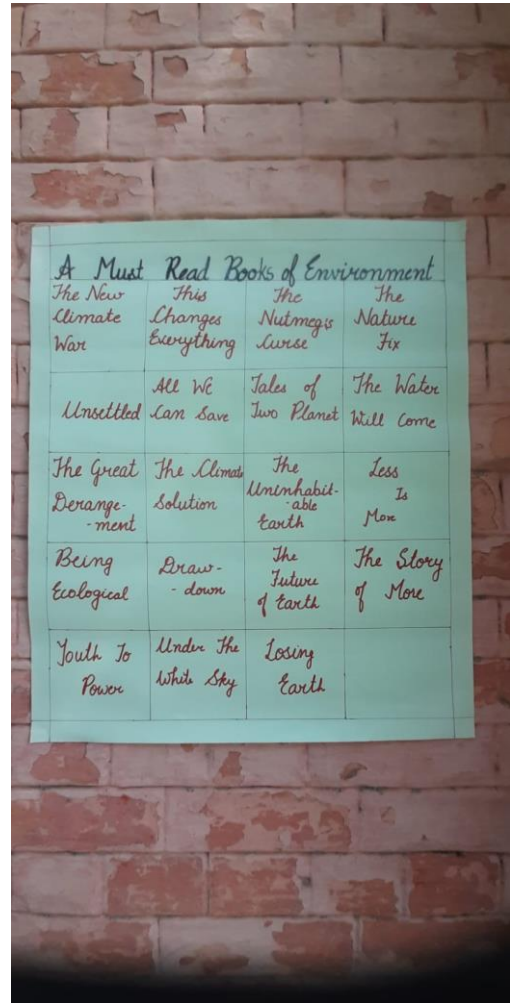 A Must Read Books of Environment
The New
Climate
War
This
Changes
Everything
The
Nutmegis
Curse
The
Nature
Fix
Unsettled
All We
Can Save
Tales of
Two Planet
The Water
Will Come
The Great
Derange-
-ment
The Climate
Solution
The
Uninhabit-
-able
Earth
Less
Is
More
Being
Ecological
Draw-
-down
The
Future
of Earth
The Story
of More
Youth To
Power
Under The
White Sky
Losing
Earth